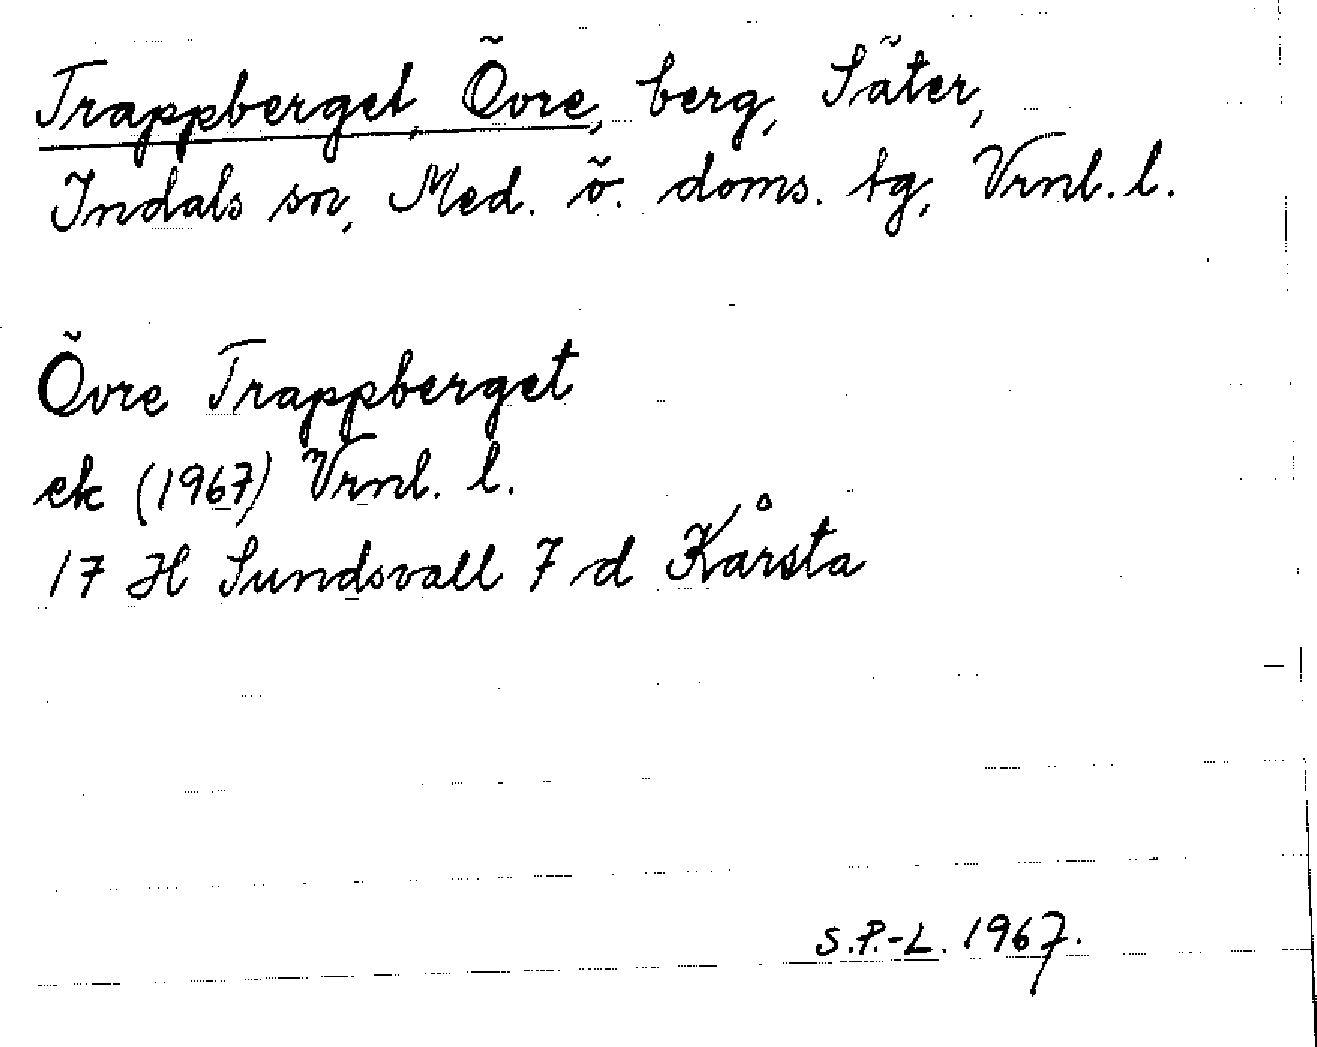 Trappberget, Övre, berg, Säter,
Indals sn, Med. ö. doms. tg, Vrnl. l.
Övre Trappberget
ek (1967) Vrnl. l.
17 H Sundsvall 7 d Kårsta
S.P.-L. 1967.